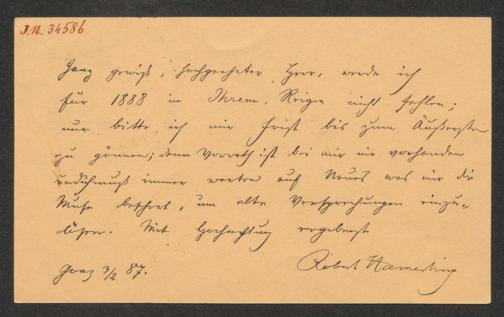 J.N. 34586
Ganz gewiß, hochgeehrter Herr, werde ich
für 1888 in Ihrem Reigen nicht fehlen;
nur bitte ich mir Frist bis zum Äußersten
zu gönnen; denn Vorrath ist bei mir nie vorhanden
und ich muß immer warten auf Neues was mir die
Muse beschert, um alte Versprechungen einzu-
lösen. Mit Hochachtung ergebenst
Graz 3/2 87.
Robert Hamerling